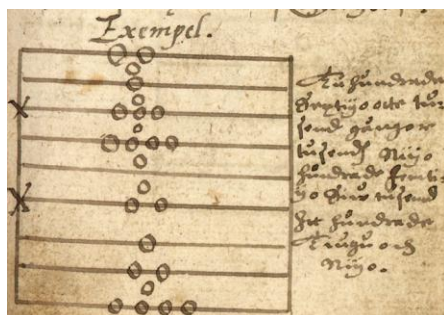 Exempel.
Tuhundrade
Sextijo otte tu
send gånger
tusend Nijo
hundrade femti-
jo Siw tusend
ett hundrade
Tiugu och
Nijo.
X
X